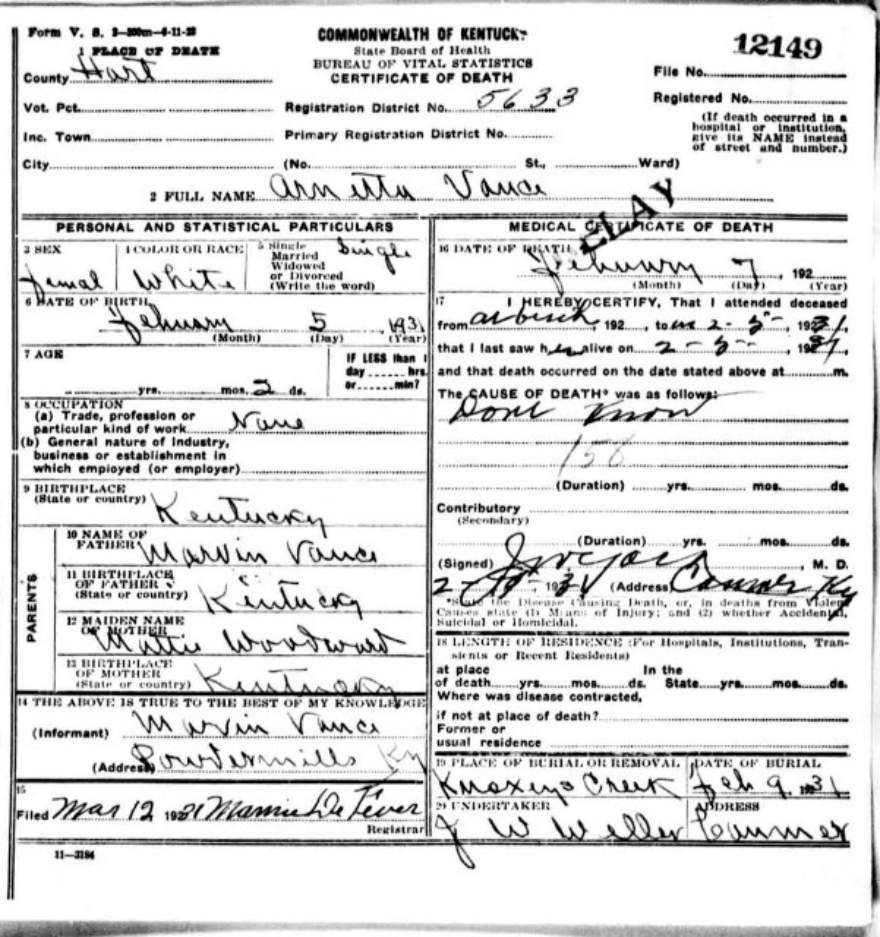 Form V. S. 3-300m-4-11-28
COMMONWEALTH OF KENTUCKY
12149
1 PLACE OF DEATH
State Board of Health
BUREAU OF VITAL STATISTICS
CERTIFICATE OF DEATH
County Hart
File No.
Vot. Pct. Registration District No. 5633
Registered No.
(If death occurred in a hospital or institution, give its NAME instead of street and number.)
Inc. Town Primary Registration District No.
City (No. St., Ward)
2 FULL NAME Arnetta Vance
DELAY
PERSONAL AND STATISTICAL PARTICULARS
3 SEX
Femal
4 COLOR OR RACE
White
5 Single
Married
Widowed
or Divorced
(Write the word)
Single
6 DATE OF BIRTH
February 5, 1931
(Month) (Day) (Year)
7 AGE
yrs. mos. 2 ds.
IF LESS than 1
day hrs.
or min?
8 OCCUPATION
(a) Trade, profession or
particular kind of work None
(b) General nature of Industry,
business or establishment in
which employed (or employer)
9 BIRTHPLACE
(State or country) Kentucky
PARENTS
10 NAME OF
FATHER Marvin Vance
11 BIRTHPLACE
OF FATHER
(State or country) Kentucky
12 MAIDEN NAME
OF MOTHER
Mattie Woodward
13 BIRTHPLACE
OF MOTHER
(State or country) Kentucky
14 THE ABOVE IS TRUE TO THE BEST OF MY KNOWLEDGE
(Informant) Marvin Vance
(Address) Powdermills Ky
15
Filed Mar 12 1931 Mamie DeFever
Registrar
11-3184
MEDICAL CERTIFICATE OF DEATH
16 DATE OF DEATH
February 7, 192
(Month) (Day) (Year)
17 I HEREBY CERTIFY, That I attended deceased
from at birth, 192 , to 2-5-, 1931,
that I last saw h alive on 2-5-, 1931
and that death occurred on the date stated above at m.
The CAUSE OF DEATH* was as follows:
Dont Know
158
(Duration) yrs. mos. ds.
Contributory
(Secondary)
(Duration) yrs. mos. ds.
(Signed) , M. D.
2- , 1931 (Address) Canmer Ky
*State the Disease Causing Death, or, in deaths from Violent
Causes state (1) Means of Injury; and (2) whether Accidental,
Suicidal or Homicidal.
18 LENGTH OF RESIDENCE (For Hospitals, Institutions, Tran-
sients or Recent Residents)
at place In the
of death yrs. mos. ds. State yrs. mos. ds.
Where was disease contracted,
if not at place of death?
Former or
usual residence
19 PLACE OF BURIAL OR REMOVAL
Knoxeys Creek
DATE OF BURIAL
Feb 9 1931
20 UNDERTAKER
J W Weller
ADDRESS
Canmer